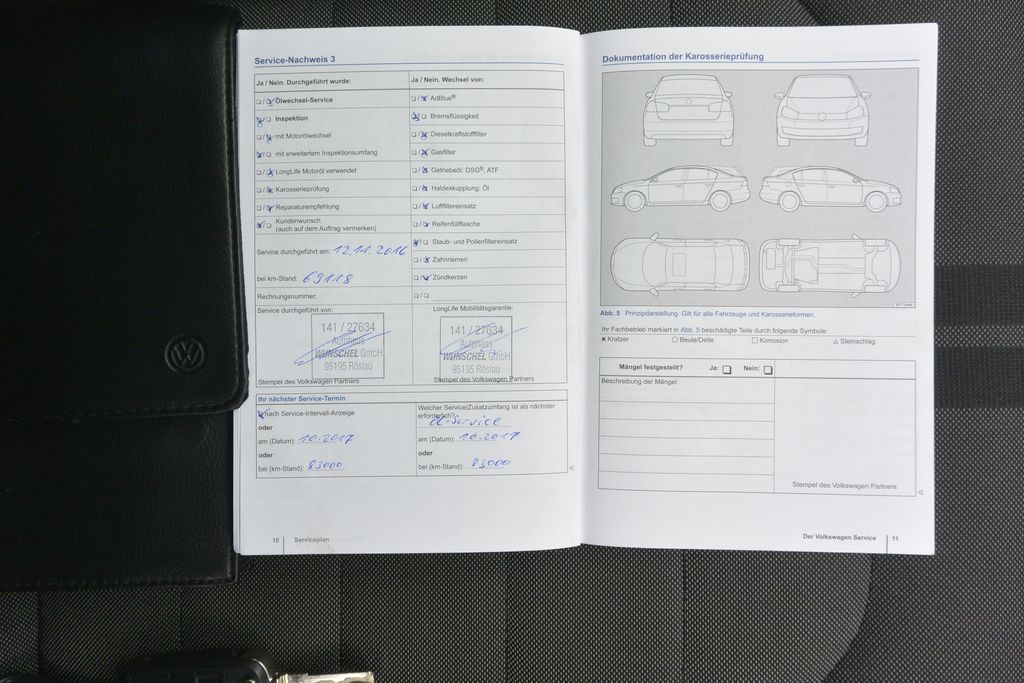 Service-Nachweis 3
Ja / Nein. Durchgeführt wurde:
Ölwechsel-Service
Inspektion
mit Motorölwechsel
mit erweitertem Inspektionsumfang
LongLife Motoröl verwendet
Karosserieprüfung
Reparaturempfehlung
Kundenwunsch
(auch auf dem Auftrag vermerken)
Service durchgeführt am: 12.11.2016
bei km-Stand: 69118
Rechnungsnummer:
Service durchgeführt von:
141 / 27634
Autohaus
WUNSCHEL GmbH
95195 Röslau
Stempel des Volkswagen Partners
Ja / Nein. Wechsel von:
AdBlue®
Bremsflüssigkeit
Dieselkraftstofffilter
Gasfilter
Getriebeöl: DSG®, ATF
Haldexkupplung: Öl
Luftfiltereinsatz
Reifenfüllflasche
Staub- und Pollenfiltereinsatz
Zahnriemen
Zündkerzen
LongLife Mobilitätsgarantie:
141 / 27634
Autohaus
WUNSCHEL GmbH
95195 Röslau
Stempel des Volkswagen Partners
Ihr nächster Service-Termin
nach Service-Intervall-Anzeige
oder
am (Datum): 10.2017
oder
bei (km-Stand): 83000
Welcher Service/Zusatzumfang ist als nächster
erforderlich?
Öl-Service
am (Datum): 10.2017
oder
bei (km-Stand): 83000
10 Serviceplan
Dokumentation der Karosserieprüfung
Abb. 5 Prinzipdarstellung. Gilt für alle Fahrzeuge und Karosserieformen.
Ihr Fachbetrieb markiert in Abb. 5 beschädigte Teile durch folgende Symbole:
Kratzer Beule/Delle Korrosion Steinschlag
Mängel festgestellt? Ja: Nein:
Beschreibung der Mängel:
Stempel des Volkswagen Partners
Der Volkswagen Service 11